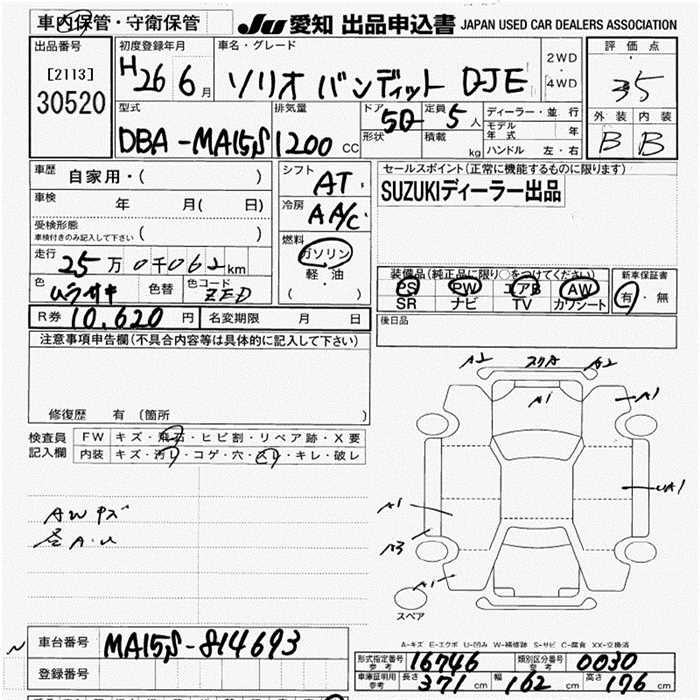 車内保管・守衛保管
JU 愛知 出品申込書 JAPAN USED CAR DEALERS ASSOCIATION
出品番号
[2113]
30520
初度登録年月
H26 6月
車名・グレード
ソリオ バンディット DJE
2WD
・
4WD
評価点
3.5
外装 内装
B B
型式
DBA-MA15S
排気量
1200 cc
ドア 5D
形状
定員 5人
積載 kg
ディーラー・並行
モデル年式 年
ハンドル 左・右
車歴 自家用・( )
車検 年 月( 日)
受検形態
車検付きのみ記入して下さい ( )
走行 25万0千062km
色 ムラサキ 色替 色コード ZED
シフト AT
冷房 AA/C
燃料
ガソリン
軽・油
( )
セールスポイント(正常に機能するものに限ります)
SUZUKIディーラー出品
装備品(純正品に限り○をつけてください)
PS PW エアB AW
SR ナビ TV カワシート
新車保証書
有・無
R券 10,620円 名変期限 月 日
後日品
注意事項申告欄(不具合内容等は具体的に記入して下さい)
修復歴 有(箇所 )
検査員記入欄
FW キズ・飛石・ヒビ割・リペア跡・X要
内装 キズ・汚れ・コゲ・穴・スレ・キレ・破レ
AWキズ
A2 スリA A2
A1 A1
UA1
A1
A3
A1
スペア
A-キズ E-エクボ U-凹み W-補修跡 S-サビ C-腐食 XX-交換済
車台番号 MA15S-814693
登録番号
形式指定番号参考 16746 類別区分番号参考 0030
車庫証明用参考 長さ 371cm 幅 162cm 高さ 176cm